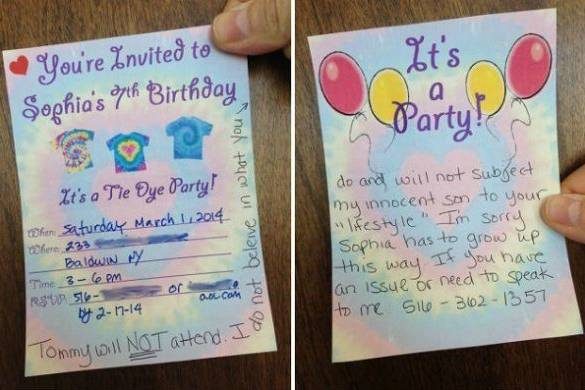 You're Invited to
Sophia's 7th Birthday
It's a Tie Dye Party!
When: Saturday March 1, 2014
Where: 233
Baldwin NY
Time: 3-6 pm
RSVP: 516- or aol.com
by 2-17-14
Tommy will NOT attend. I
do not beleive in what you
It's
a
Party!
do and will not subject
my innocent son to your
"lifestyle". I'm sorry
Sophia has to grow up
this way. If you have
an issue or need to speak
to me 516-362-1357